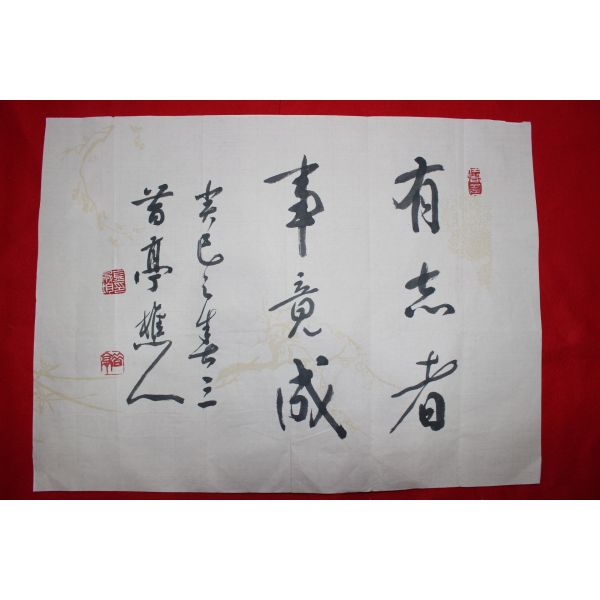 有志者
事竟成
癸巳之春三
苕亭樵人